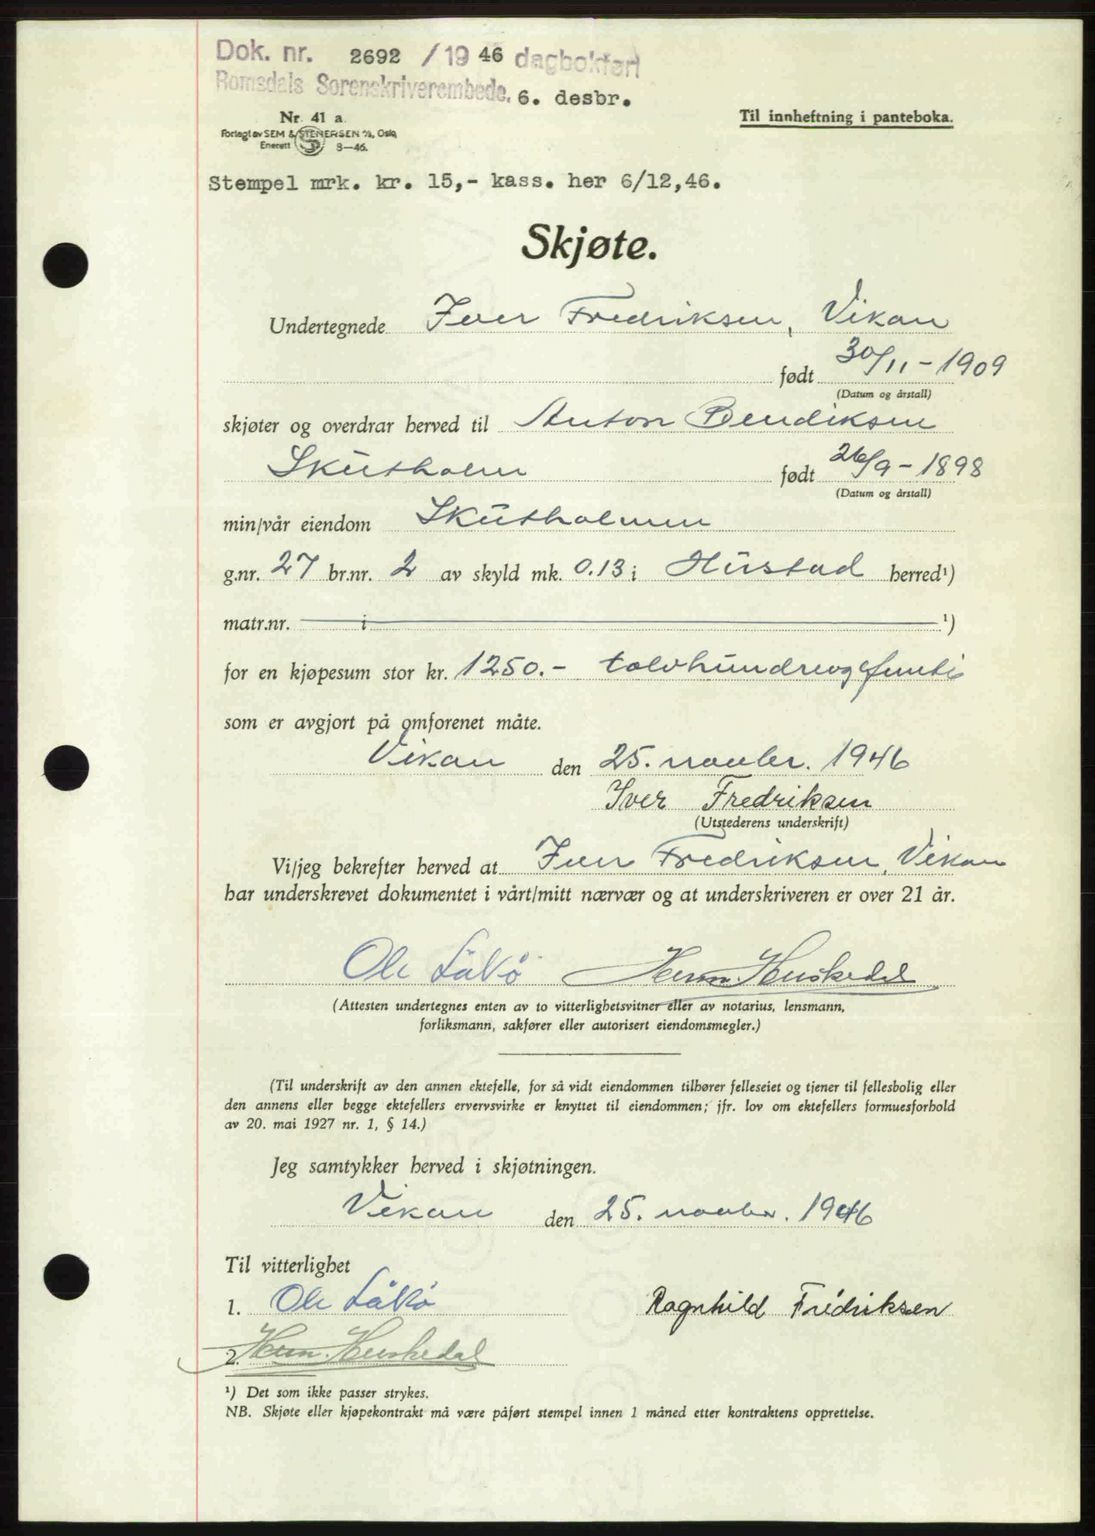 Dok. nr. 2692 / 19 46 dagbokført
Romsdals Sorenskriverembede. 6. desbr.
Nr. 41 a.
Forlagt av SEM & STENERSEN A/S, Oslo
Enerett 8—46.
Til innheftning i panteboka.
Stempel mrk. kr. 15,- kass. her 6/12,46.
Skjøte.
Undertegnede Iver Fredriksen, Vikan
født 30/11 - 1909
(Datum og årstall)
skjøter og overdrar herved til Anton Bendiksen
Skutholm født 26/9 - 1898
(Datum og årstall)
min/vår eiendom Skutholmen
g.nr. 27 br.nr. 2 av skyld mk. 0.13 i Hustad herred¹)
matr.nr. i ¹)
for en kjøpesum stor kr. 1250.- tolvhundreogfemti
som er avgjort på omforenet måte.
Vikan den 25. novbr. 1946
Iver Fredriksen
(Utstederens underskrift)
Vi/jeg bekrefter herved at Iver Fredriksen, Vikan
har underskrevet dokumentet i vårt/mitt nærvær og at underskriveren er over 21 år.
Ole Låkö Herm. Huskedal
(Attesten undertegnes enten av to vitterlighetsvitner eller av notarius, lensmann,
forliksmann, sakfører eller autorisert eiendomsmegler.)
(Til underskrift av den annen ektefelle, for så vidt eiendommen tilhører felleseiet og tjener til fellesbolig eller
den annens eller begge ektefellers ervervsvirke er knyttet til eiendommen; jfr. lov om ektefellers formuesforhold
av 20. mai 1927 nr. 1, § 14.)
Jeg samtykker herved i skjøtningen.
Vikan den 25. novbr. 1946
Til vitterlighet
1. Ole Låkö Ragnhild Fredriksen
2. Herm. Huskedal
¹) Det som ikke passer strykes.
NB. Skjøte eller kjøpekontrakt må være påført stempel innen 1 måned etter kontraktens opprettelse.